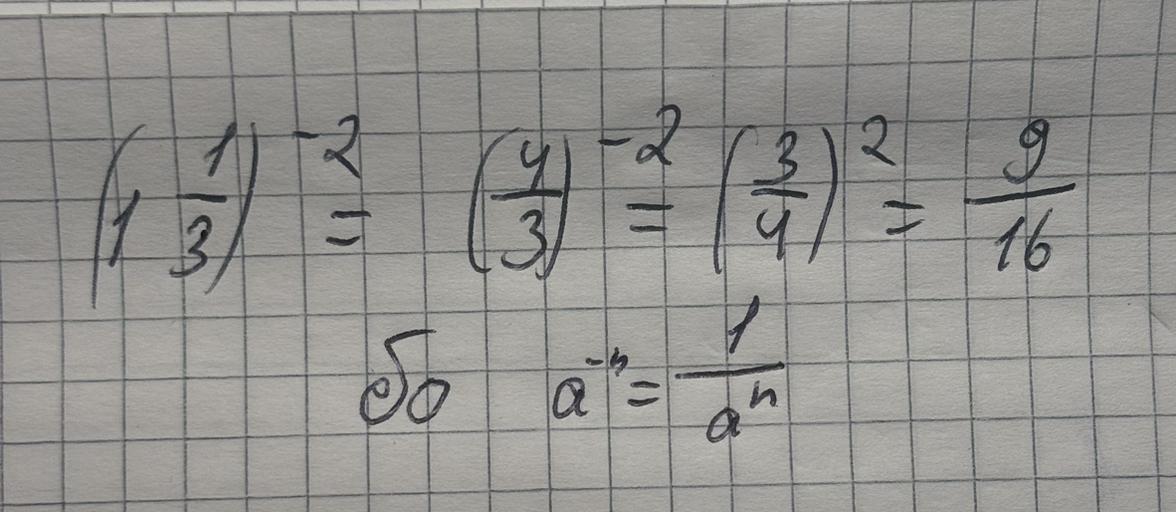 (1 1/3)^-2 = (4/3)^-2 = (3/4)^2 = 9/16
бо a^-n = 1/a^n